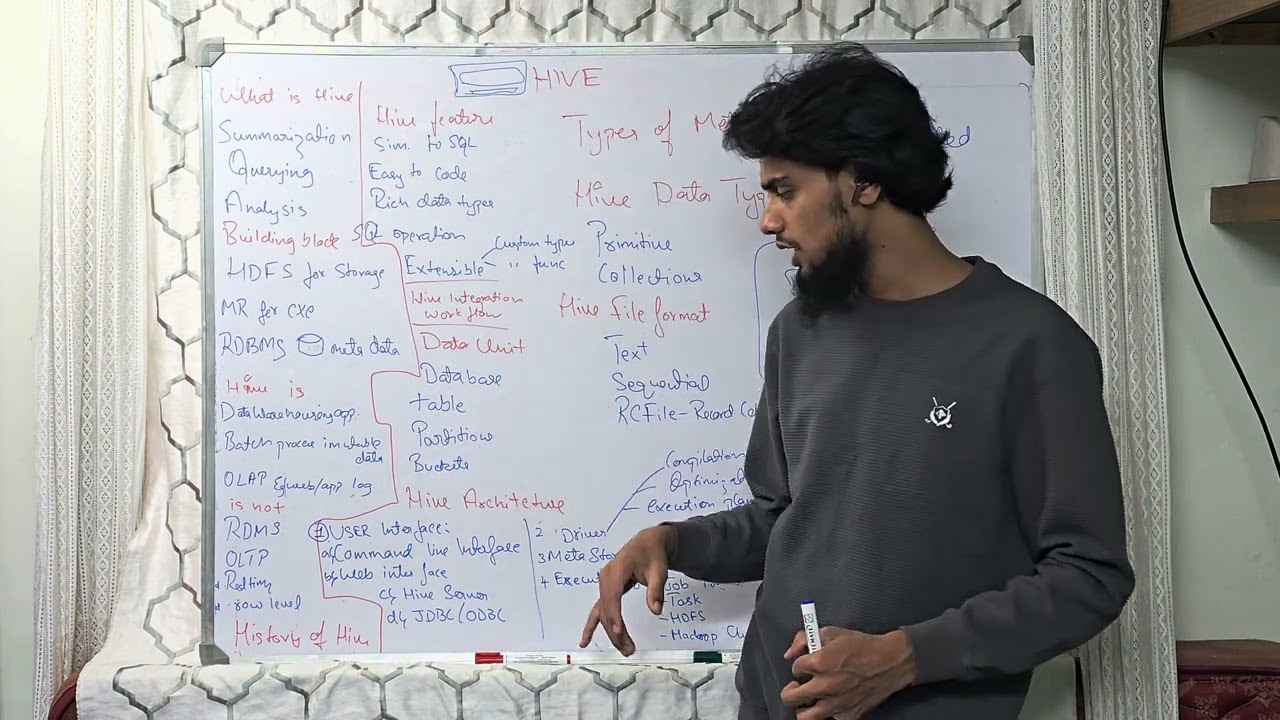 HIVE
What is Hive
Summarization
Querying
Analysis
Building block
HDFS for Storage
MR for exe
RDBMS meta data
Hive is
Datawarehousing app.
Batch process immutable
data
OLAP Eg web/app log
is not
RDMS
OLTP
row level
History of Hive
Hive feature
Sim. to SQL
Easy to code
Rich data types
SQL operation
Extensible
Custom type
" func
Hive Integration
work flow
Data Unit
Database
table
Partition
Buckets
Hive Architeture
1 USER Interface:
a) Command line Interface
b) Web inter face
c) Hive Server
d) JDBC/ODBC
Types of
ed
Hive Data Typ
Primitive
Collections
Hive File format
Text
Sequential
RCFile - Record
Compilation
Optimiza
execution pla
2 Driver
3 Meta Sto
4 Execu
Job
- Task
- HDFS
- Hadoop Clu